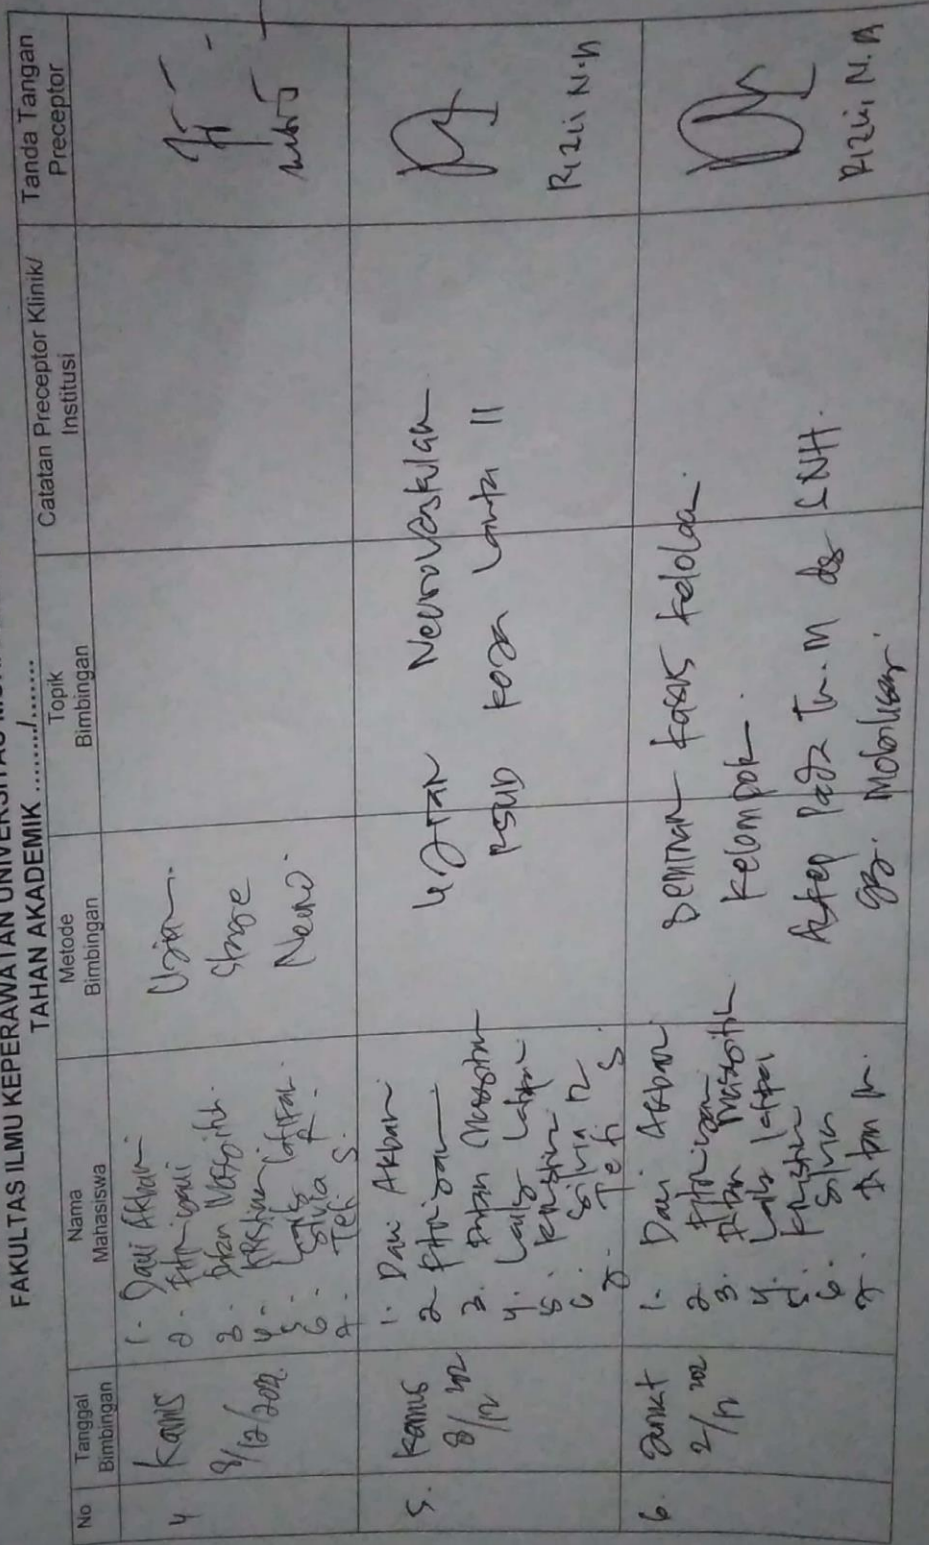 FAKULTAS ILMU KEPERAWATAN UNIVERSITAS
TAHAN AKADEMIK ......../........
No
Tanggal Bimbingan
Nama Mahasiswa
Metode Bimbingan
Topik Bimbingan
Catatan Preceptor Klinik/ Institusi
Tanda Tangan Preceptor
4
Kamis
8/12/2022
1. Davi Akbar
2. Fitriyani
3. Intan
4. Kristin
5. Laily
6. Silvia R.
7. Teti S.
Ujian
Stase
Neuro.
5.
Kamis
8/12
1. Davi Akbar
2
3. Intan
4. Laily
5. Kristin
6. Silvia R
7. Teti S.
Neurovaskular
RSUD Koja Lantai 11
Rizki N.A
6.
Jumat
2/12
1. Davi Akbar
2.
3. Intan
4. Laily
5. Kristin
6. Silvia
7.
Seminar kasus kelolaan
kelompok
Askep pada Tn. M dg SNH.
gg. Mobilisasi.
Rizki N.A